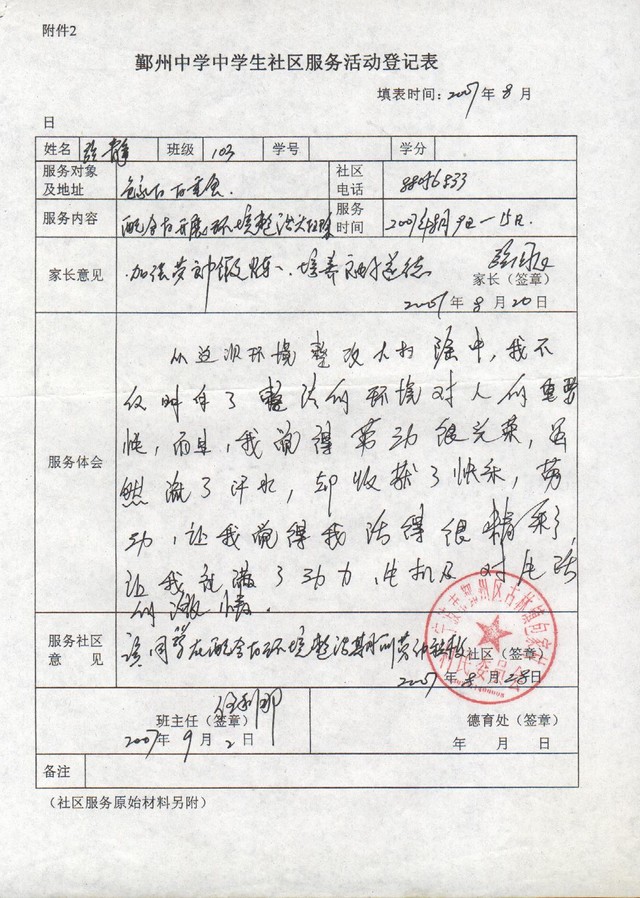 附件2
鄞州中学中学生社区服务活动登记表
填表时间：2007年8月
日
姓名 静 班级 103 学号 学分
服务对象及地址 社区电话
服务内容 服务时间 2007年8月9日—15日
家长意见 加强劳动锻炼、培养 道德
家长（签章）
2007年8月20日
服务体会
从这次环境整改大扫除中，我不
仅明白了整洁的环境对人的重要
性，而且，我觉得劳动很光荣，虽
然流了汗水，却收获了快乐，劳
动，让我觉得我活得很精采了，
让我充满了动力、 对生活
的激情。
服务社区意见 该同学在配合 环境整洁期间劳动
社区（签章）
2007年8月28日
班主任（签章）
2007年9月2日
德育处（签章）
年 月 日
备注
（社区服务原始材料另附）